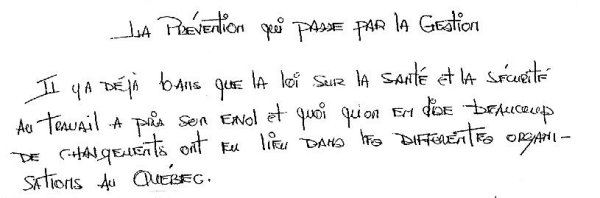 LA PRÉVENTION qui PASSE PAR LA GESTION
Il Y A DÉJÀ 6 ANS QUE LA loi SUR LA SANTÉ et LA SÉCURITÉ
AU TRAVAIL A PRIS SON et quoi qu'on EN DISE BEAUCOUP
DE CHANGEMENTS ONT EU LIEU DANS LES DIFFÉRENTES ORGANI-
SATIONS AU QUÉBEC.